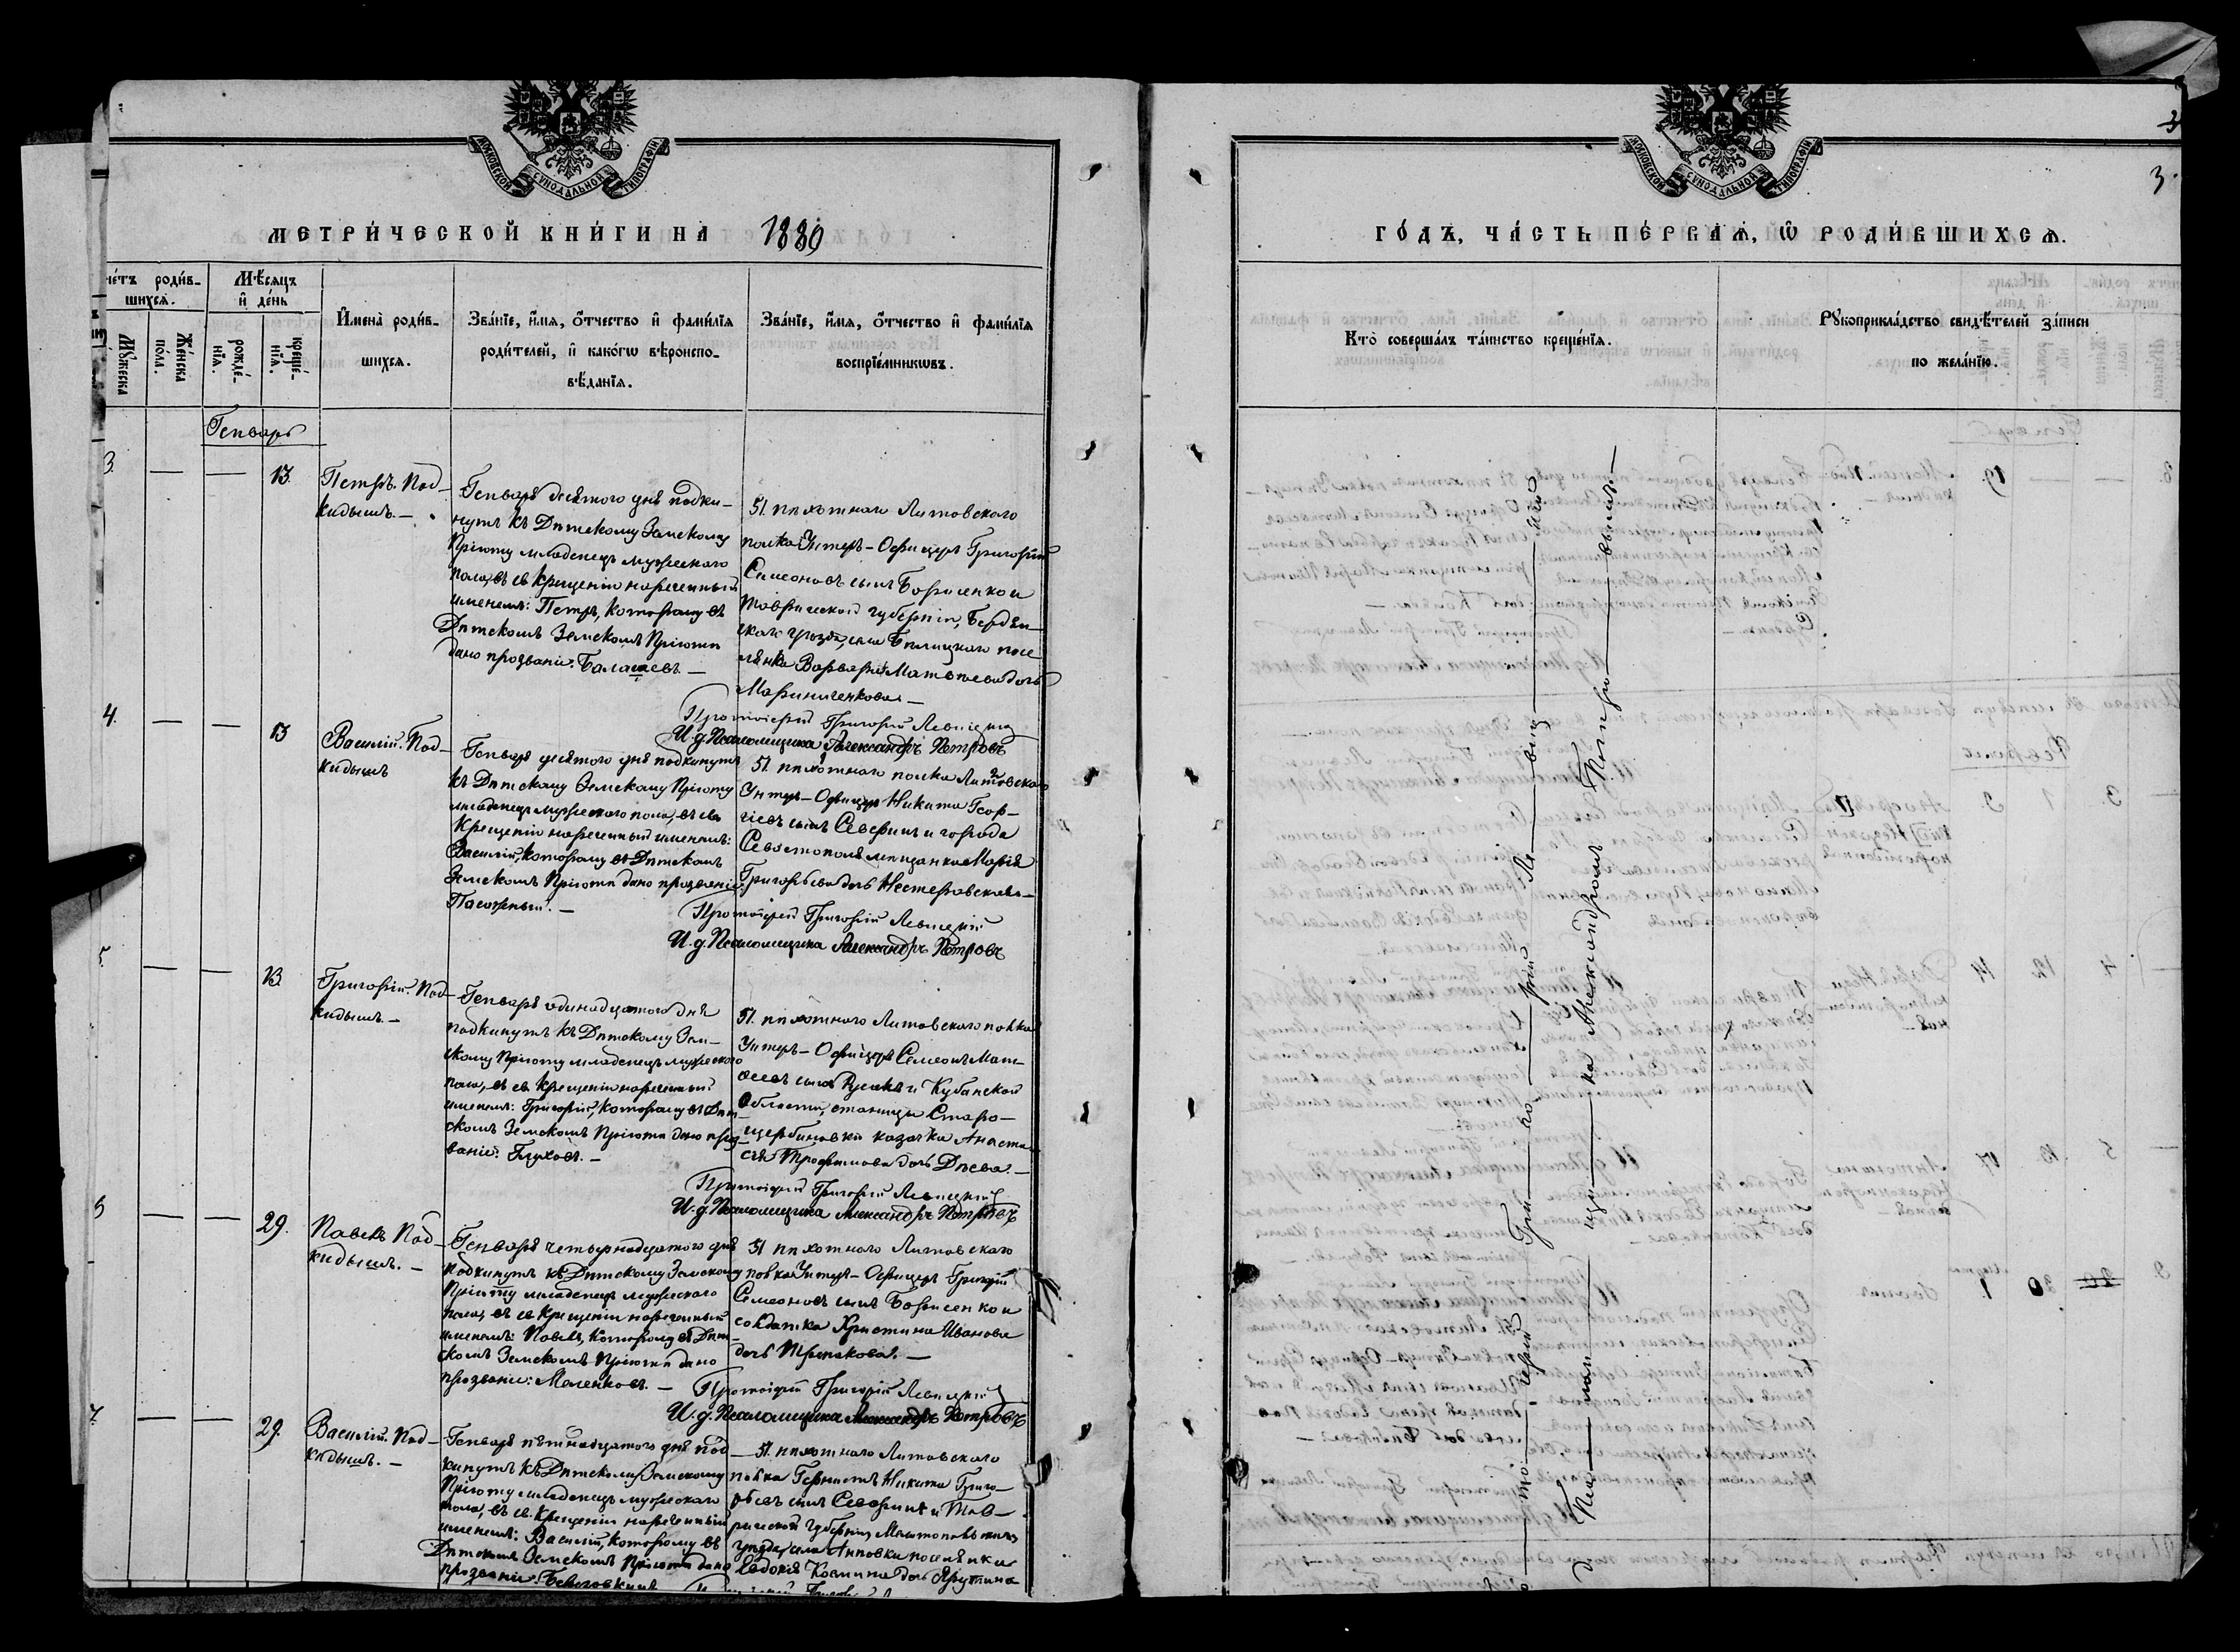 МОСКОВСКОЙ СѴНОДАЛЬНОЙ ТИПОГРАФІИ
МЕТРИ́ЧЕСКОЙ КНИ́ГИ НА 1889
чётъ роди́в-
шихся.
Мѣ́сяцъ
и҆ де́нь
Му́жеска
Же́нска
по́ла.
рожде́-
нїѧ.
креще́-
нїѧ.
И҆мена̀ роди́в-
шихся.
Зва́нїе, и҆́мѧ, ѻ҆́тчество и҆ фами́лїѧ
роди́телей, и҆ како́гѡ вѣроиспо-
вѣ́данїѧ.
Зва́нїе, и҆́мѧ, ѻ҆́тчество и҆ фами́лїѧ
воспрїе́мникѡвъ.
Генварь
3. — — 13.
Петръ. Под-
кидышъ. —
Генваря десятого дня подки-
нутъ къ Дѣтскому Земскому
Пріюту младенецъ мужескаго
пола, въ св. крещеніи нареченный
именемъ: Петръ, которому въ
Дѣтскомъ Земскомъ Пріютѣ
дано прозваніе: Балашевъ. —
51. пѣхотнаго Литовскаго
полка Унтеръ-Офицеръ Григорій
Семеоновъ сынъ Борисенко и
Таврической губерніи, Бердян-
скаго уѣзда, села посе
лянка Варвара Матвѣева дочь
Мариниченкова. —
Протоіерей Григорій Левицкій
И. д. Псаломщика Александръ Петровъ
4. — — 13
Василій. Под-
кидышъ
Генваря десятого дня подкинутъ
къ Дѣтскому Земскому Пріюту
младенецъ мужескаго пола, въ св.
Крещеніи нареченный именемъ:
Василій, которому въ Дѣтскомъ
Земскомъ Пріютѣ дано прозваніе:
51. пѣхотнаго полка Литовскаго
Унтеръ-Офицеръ Никита Геор-
гіевъ сынъ Северинъ и города
Севастополя мѣщанка Марія
Григорьева дочь Нестеровскова —
Протоіерей Григорій Левицкій
И. д. Псаломщика Александръ Петровъ
5. — — 13.
Григорій. Под-
кидышъ. —
Генваря одинадцатого дня
подкинутъ къ Дѣтскому Зем-
скому Пріюту младенецъ мужескаго
пола, въ св. Крещеніи нареченный
именемъ: Григорій, которому въ Дѣт-
скомъ Земскомъ Пріютѣ дано проз-
ваніе: Глуховъ. —
51. пѣхотнаго Литовскаго полка
Унтеръ-Офицеръ Семеонъ Мат-
ѳеевъ сынъ и Кубанской
Области, станицы Старо-
щербиновки казачка Анаста
сія Трофимова дочь Дѣева. —
Протоіерей Григорій Левицкій
И. д. Псаломщика Александръ Петровъ
6 — — 29.
Павелъ Под-
кидышъ. —
Генваря четырнадцатого дня
подкинутъ къ Дѣтскому Земскому
Пріюту младенецъ мужескаго
пола, въ св. Крещеніи нареченный
именемъ: Павелъ, которому въ Дѣт-
скомъ Земскомъ Пріютѣ дано
прозваніе: Маленковъ. —
51 пѣхотнаго Литовскаго
полка Унтеръ-Офицеръ Григорій
Семеоновъ сынъ Борисенко и
солдатка Христина Иванова
дочь Третякова. —
Протоіерей Григорій Левицкій
И. д. Псаломщика Александръ Петровъ
7. — — 29.
Василій. Под-
кидышъ. —
Генваря пятнадцатого дня под
кинутъ къ Дѣтскому Земскому
Пріюту младенецъ мужескаго
пола, въ св. Крещеніи нареченный
именемъ: Василій, которому въ
Дѣтскомъ Земскомъ Пріютѣ дано
прозваніе:
— 51. пѣхотнаго Литовскаго
полка Горнистъ Никита Григо-
рьевъ сынъ Северинъ и Тав-
рической губерніи Мелитопольскаго
уѣзда, села Анновки поселянка
Евдокія Космина дочь
МОСКОВСКОЙ СѴНОДАЛЬНОЙ ТИПОГРАФІИ
3
3.
ГО́ДЪ, ЧА́СТЬ ПЕ́РВАѦ, Ѡ҆ РОДИ́ВШИХСѦ.
Кто̀ соверша́лъ та́инство креще́нїѧ.
Рꙋкоприкла́дство свидѣ́телей за́писи
по жела́нїю.
Про — то — іерей — Гри — го — рій — Ле — виц — кій
И. д. Пса — лом — щи — ка Александромъ Петро — вымъ —